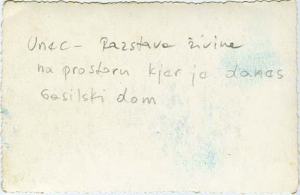 Unec - Razstava živine
na prostoru kjer je danes
Gasilski dom